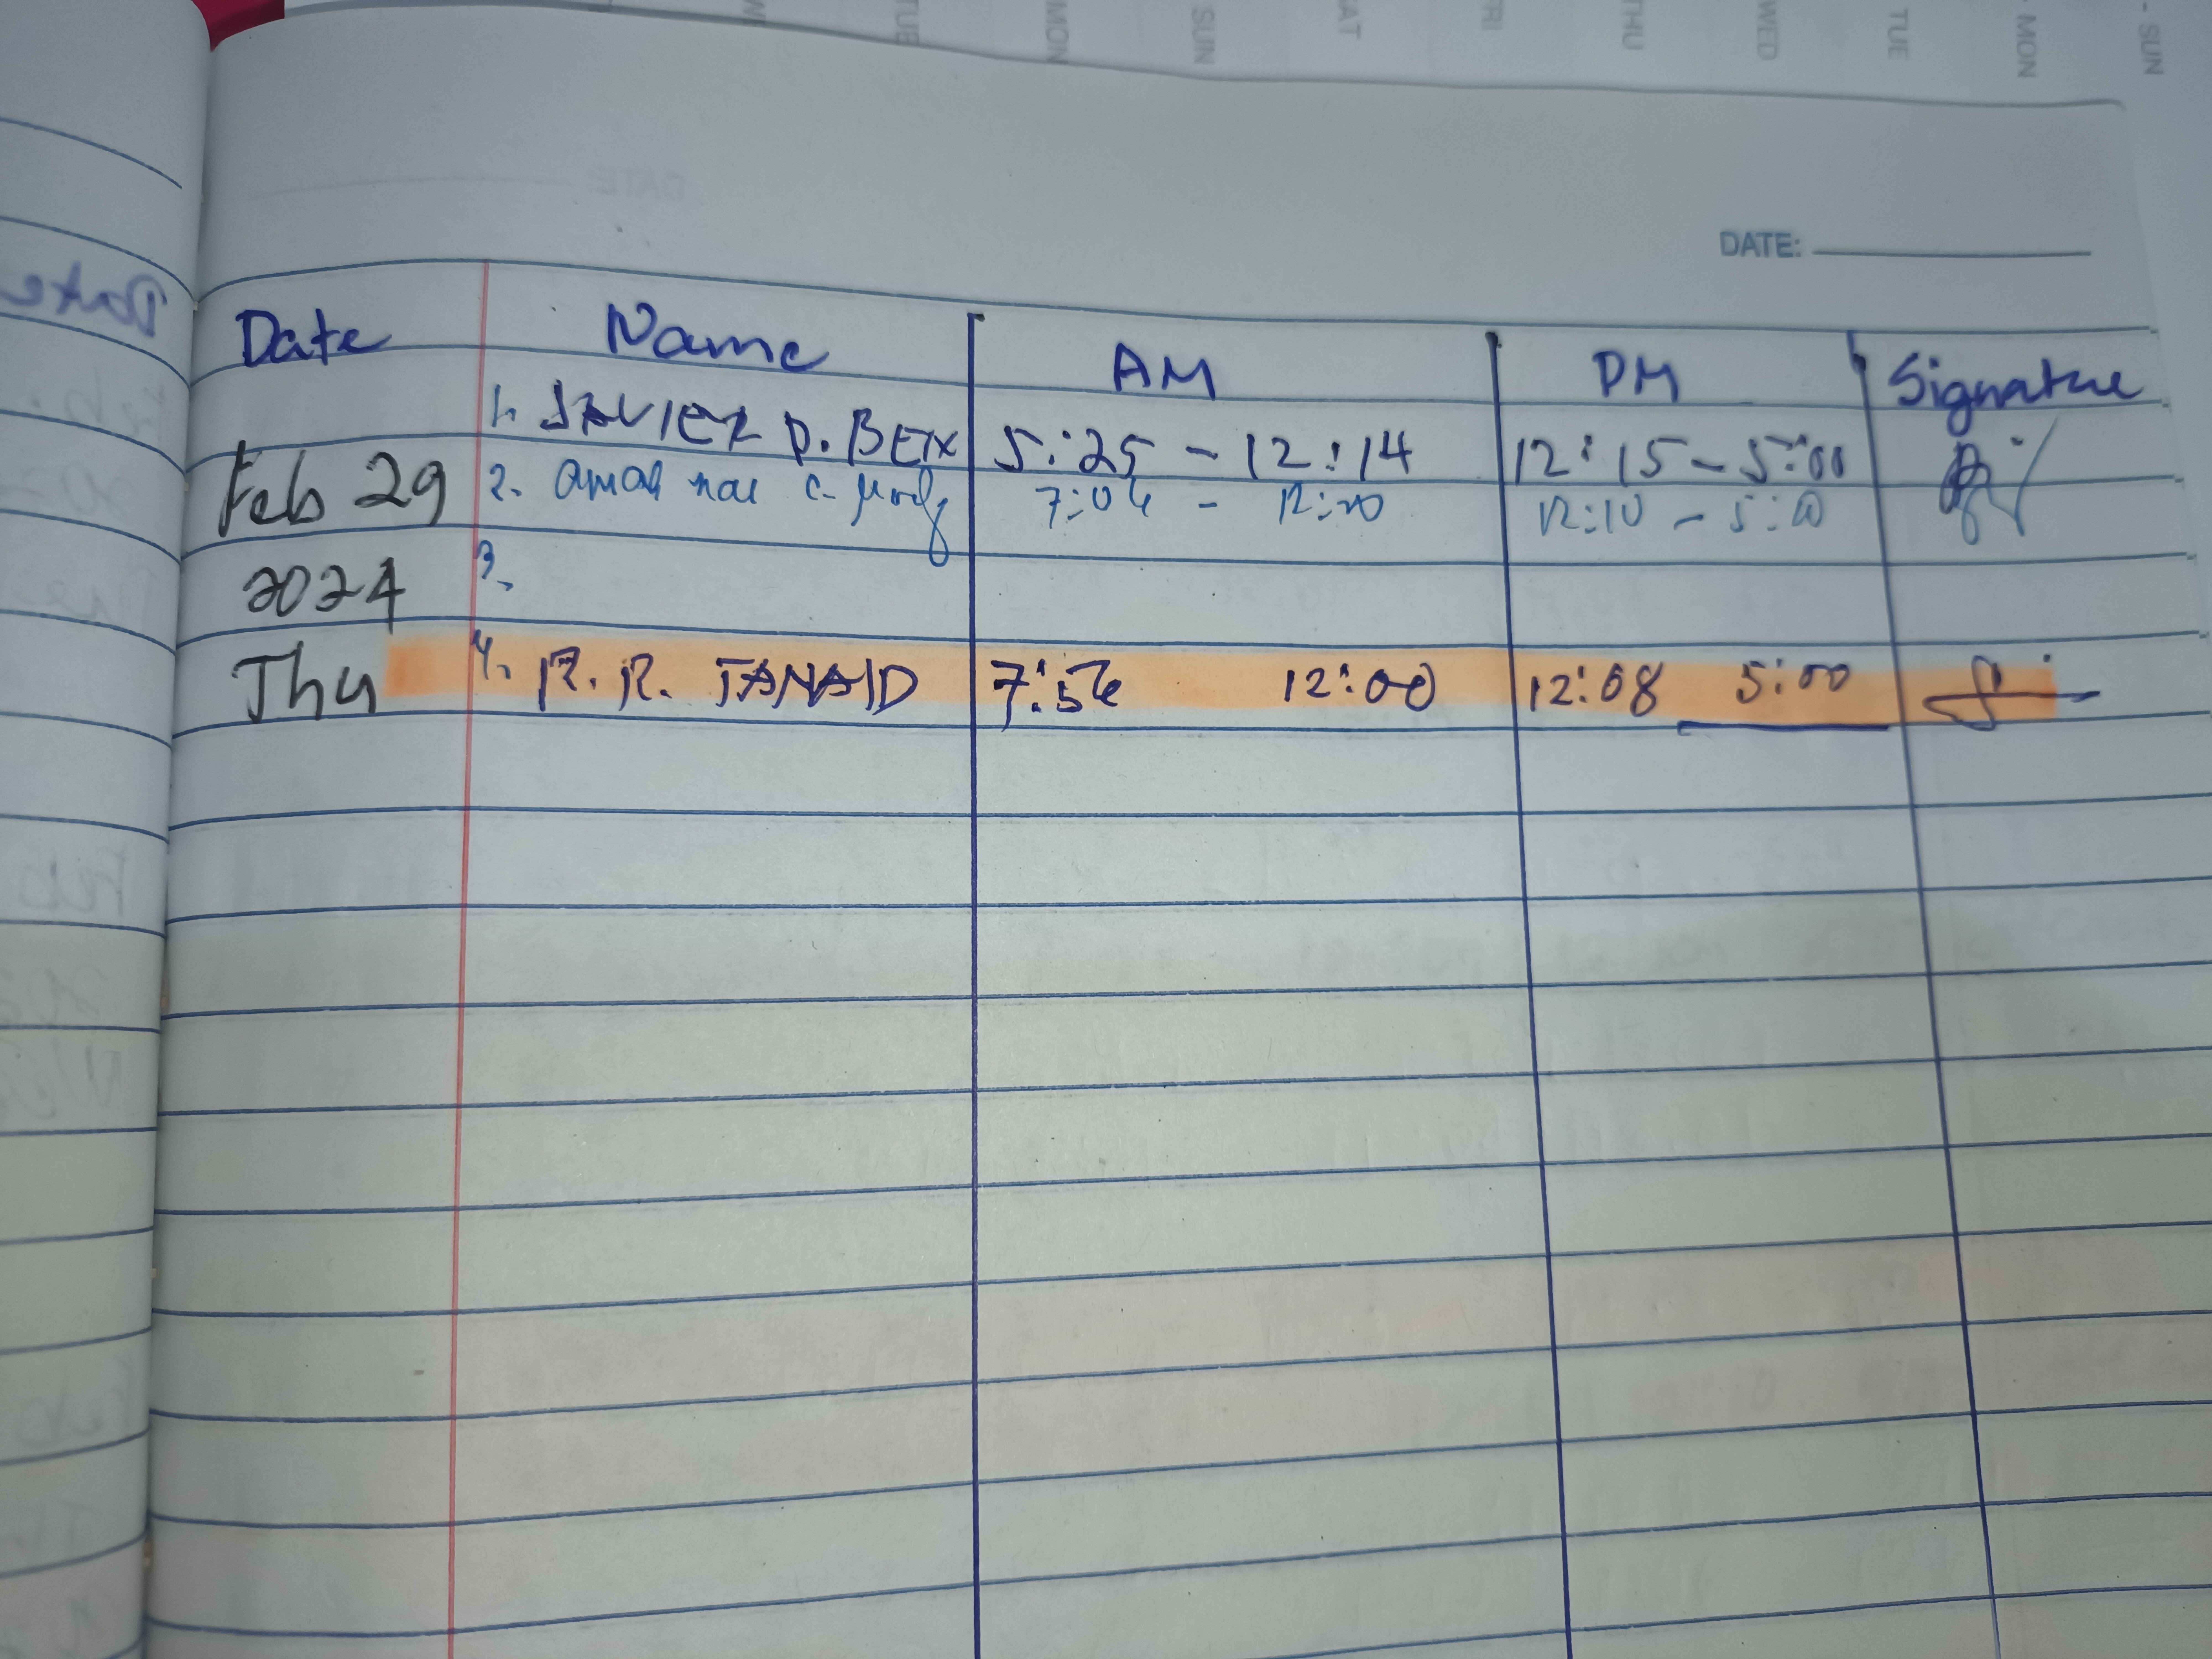 SUN
MON
TUE
WED
THU
FRI
SAT
SUN
MON
TUE
DATE:
Date Name AM PM Signature
1. JAVIER D. BEIX 5:25 - 12:14 12:15 - 5:00
Feb 29 2. 7:04 - 12:00 12:10 - 5:00
2024 3.
Thu 4. R. R. TANAID 7:56 12:00 12:08 5:00